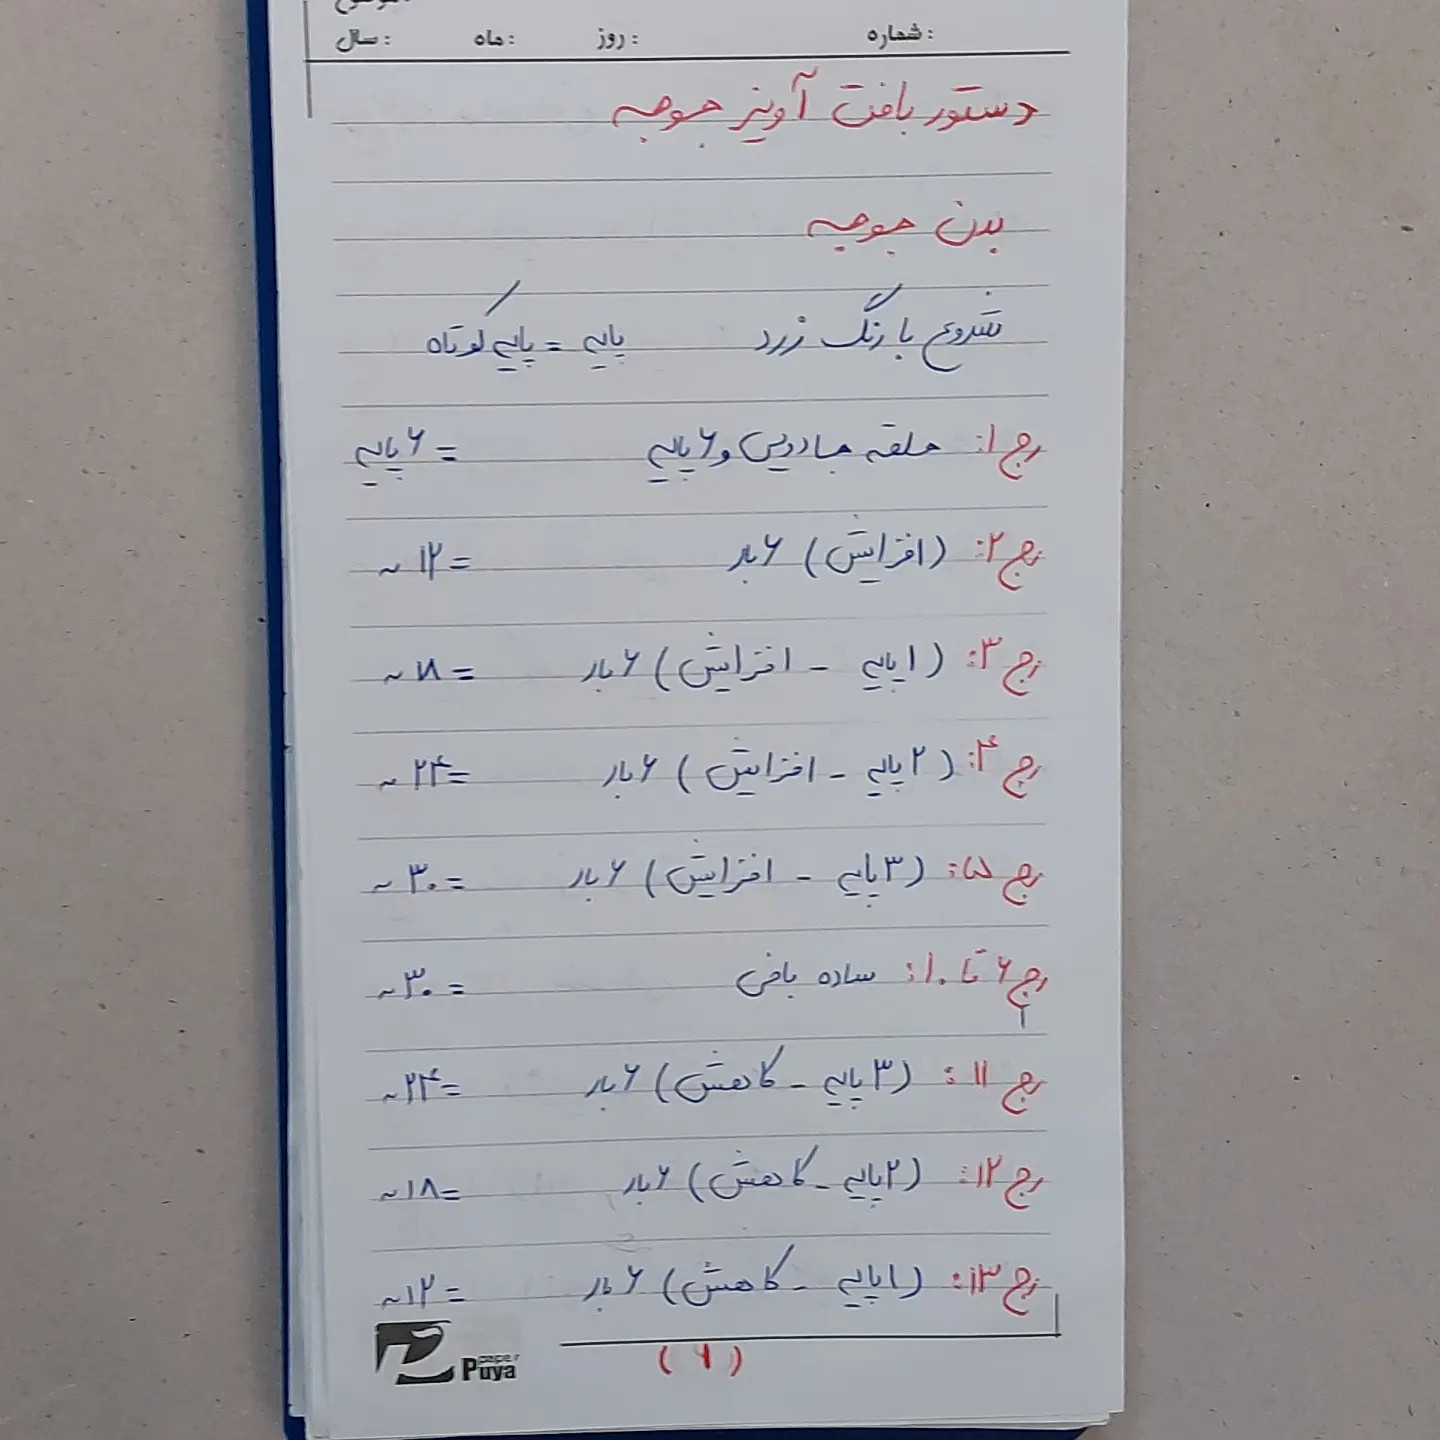 شماره: روز: ماه: سال:
دستور بافت آویز جوجه
بدن جوجه
شروع با رنگ زرد پایه = پایه کوتاه
رج ۱: حلقه جادویی و ۶ پایه = ۶ پایه
رج ۲: (افزایش) ۶ بار = ۱۲ ~
رج ۳: (۱ پایه - افزایش) ۶ بار = ۱۸ ~
رج ۴: (۲ پایه - افزایش) ۶ بار = ۲۴ ~
رج ۵: (۳ پایه - افزایش) ۶ بار = ۳۰ ~
رج ۶ تا ۱۰: ساده بافی = ۳۰ ~
رج ۱۱: (۳ پایه - کاهش) ۶ بار = ۲۴ ~
رج ۱۲: (۲ پایه - کاهش) ۶ بار = ۱۸ ~
رج ۱۳: (۱ پایه - کاهش) ۶ بار = ۱۲ ~
(۱)
Puya paper